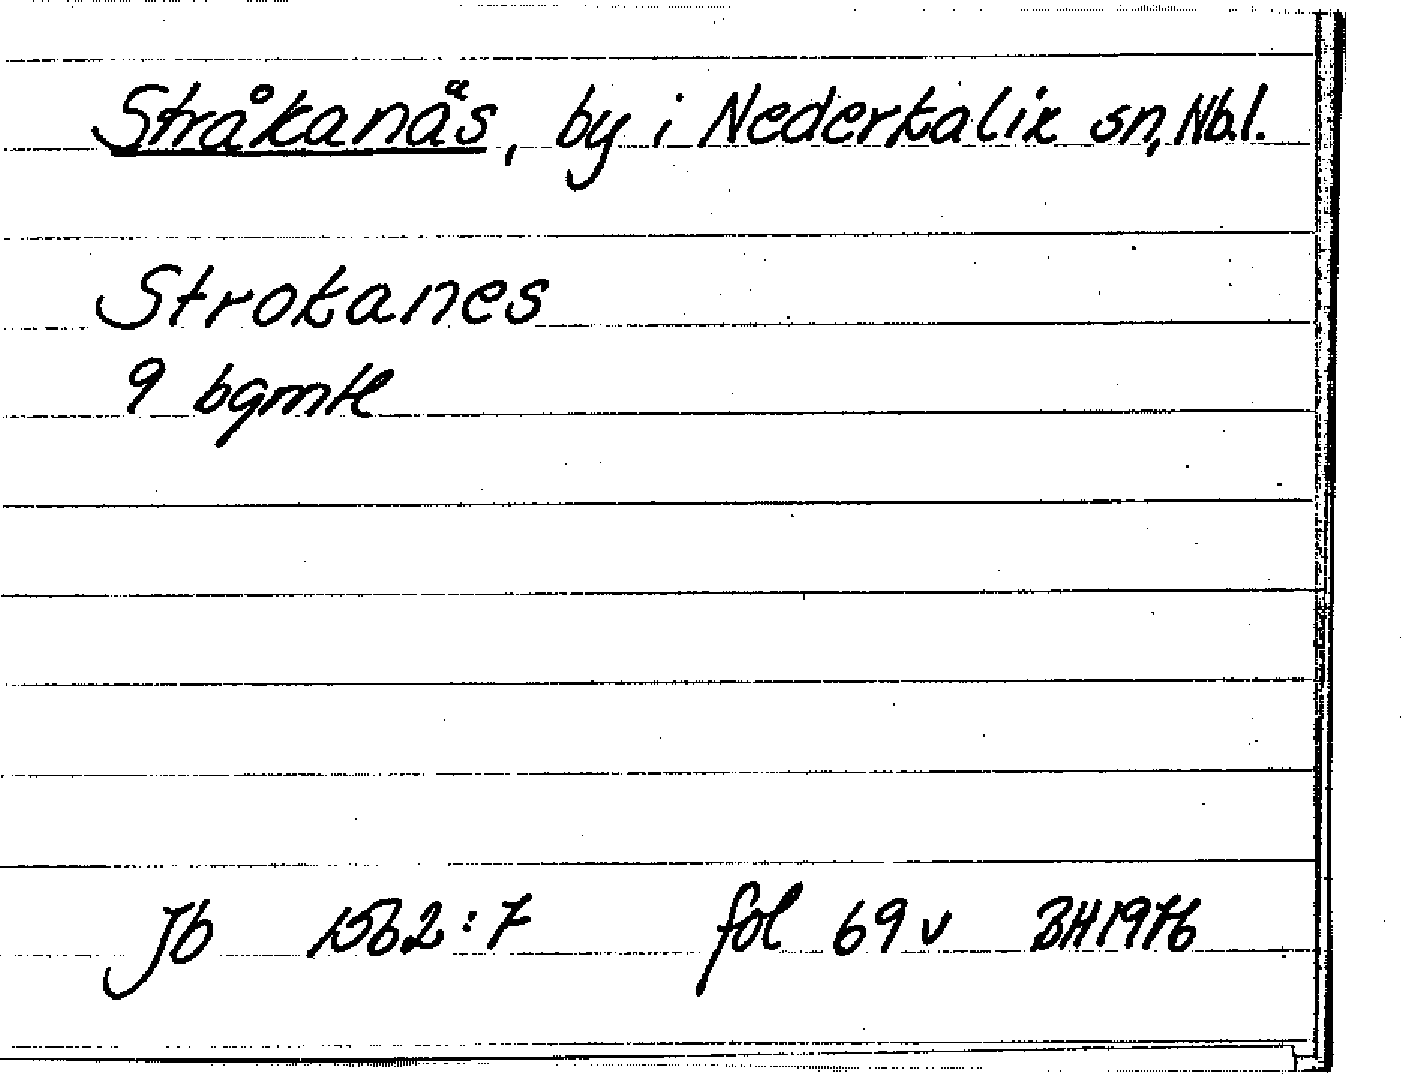 Stråkanäs, by i Nederkalix sn, Nb.l.
Strokanes
9 bgmtl
Jb 1562:7 fol 69 v BH 1976